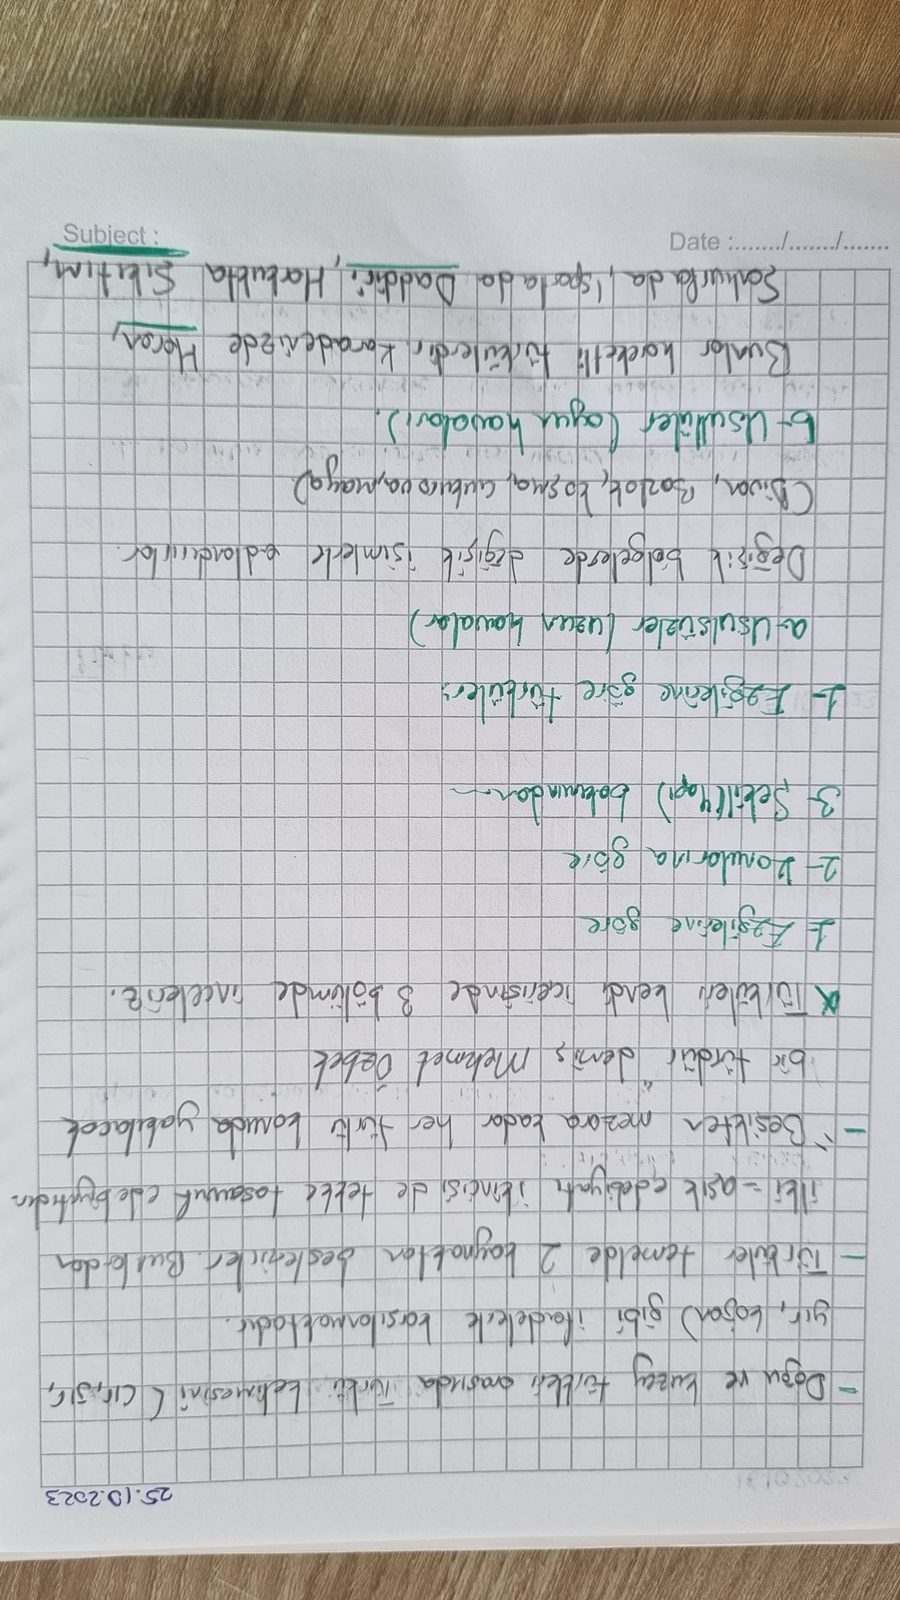 25.10.2023
- Doğu ve kuzey türkleri arasında Türkü kelimesini (cır, jır,
yır, koşan) gibi ifadelerle karşılanmaktadır.
- Türküler temelde 2 kaynaktan beslenirler. Bunlardan
ilki = aşık edebiyatı ikincisi de tekke tasavvuf edebiyatıdır
- "Beşikten mezara kadar her türlü konuda yakılacak
bir türdür" demiş Mehmet Özbek
* Türküleri kendi içerisinde 3 bölümde inceleriz.
1- Ezgilerine göre
2- Konularına göre
3- Şekil (Yapı) bakımından
1- Ezgilerine göre türküler:
a- Usulsüzler (uzun havalar)
Değişik bölgelerde değişik isimlerle adlandırılır.
(Divan, Bozlak, koşma, çukurova, maya)
b- Usullüler (oyun havaları.)
Bunlar hareketli türkülerdir. Karadenizde Horon,
Şanlıurfa da, Isparta da Daddiri, Harput'ta Şıkıltım,
Subject :
Date :......./......./.......